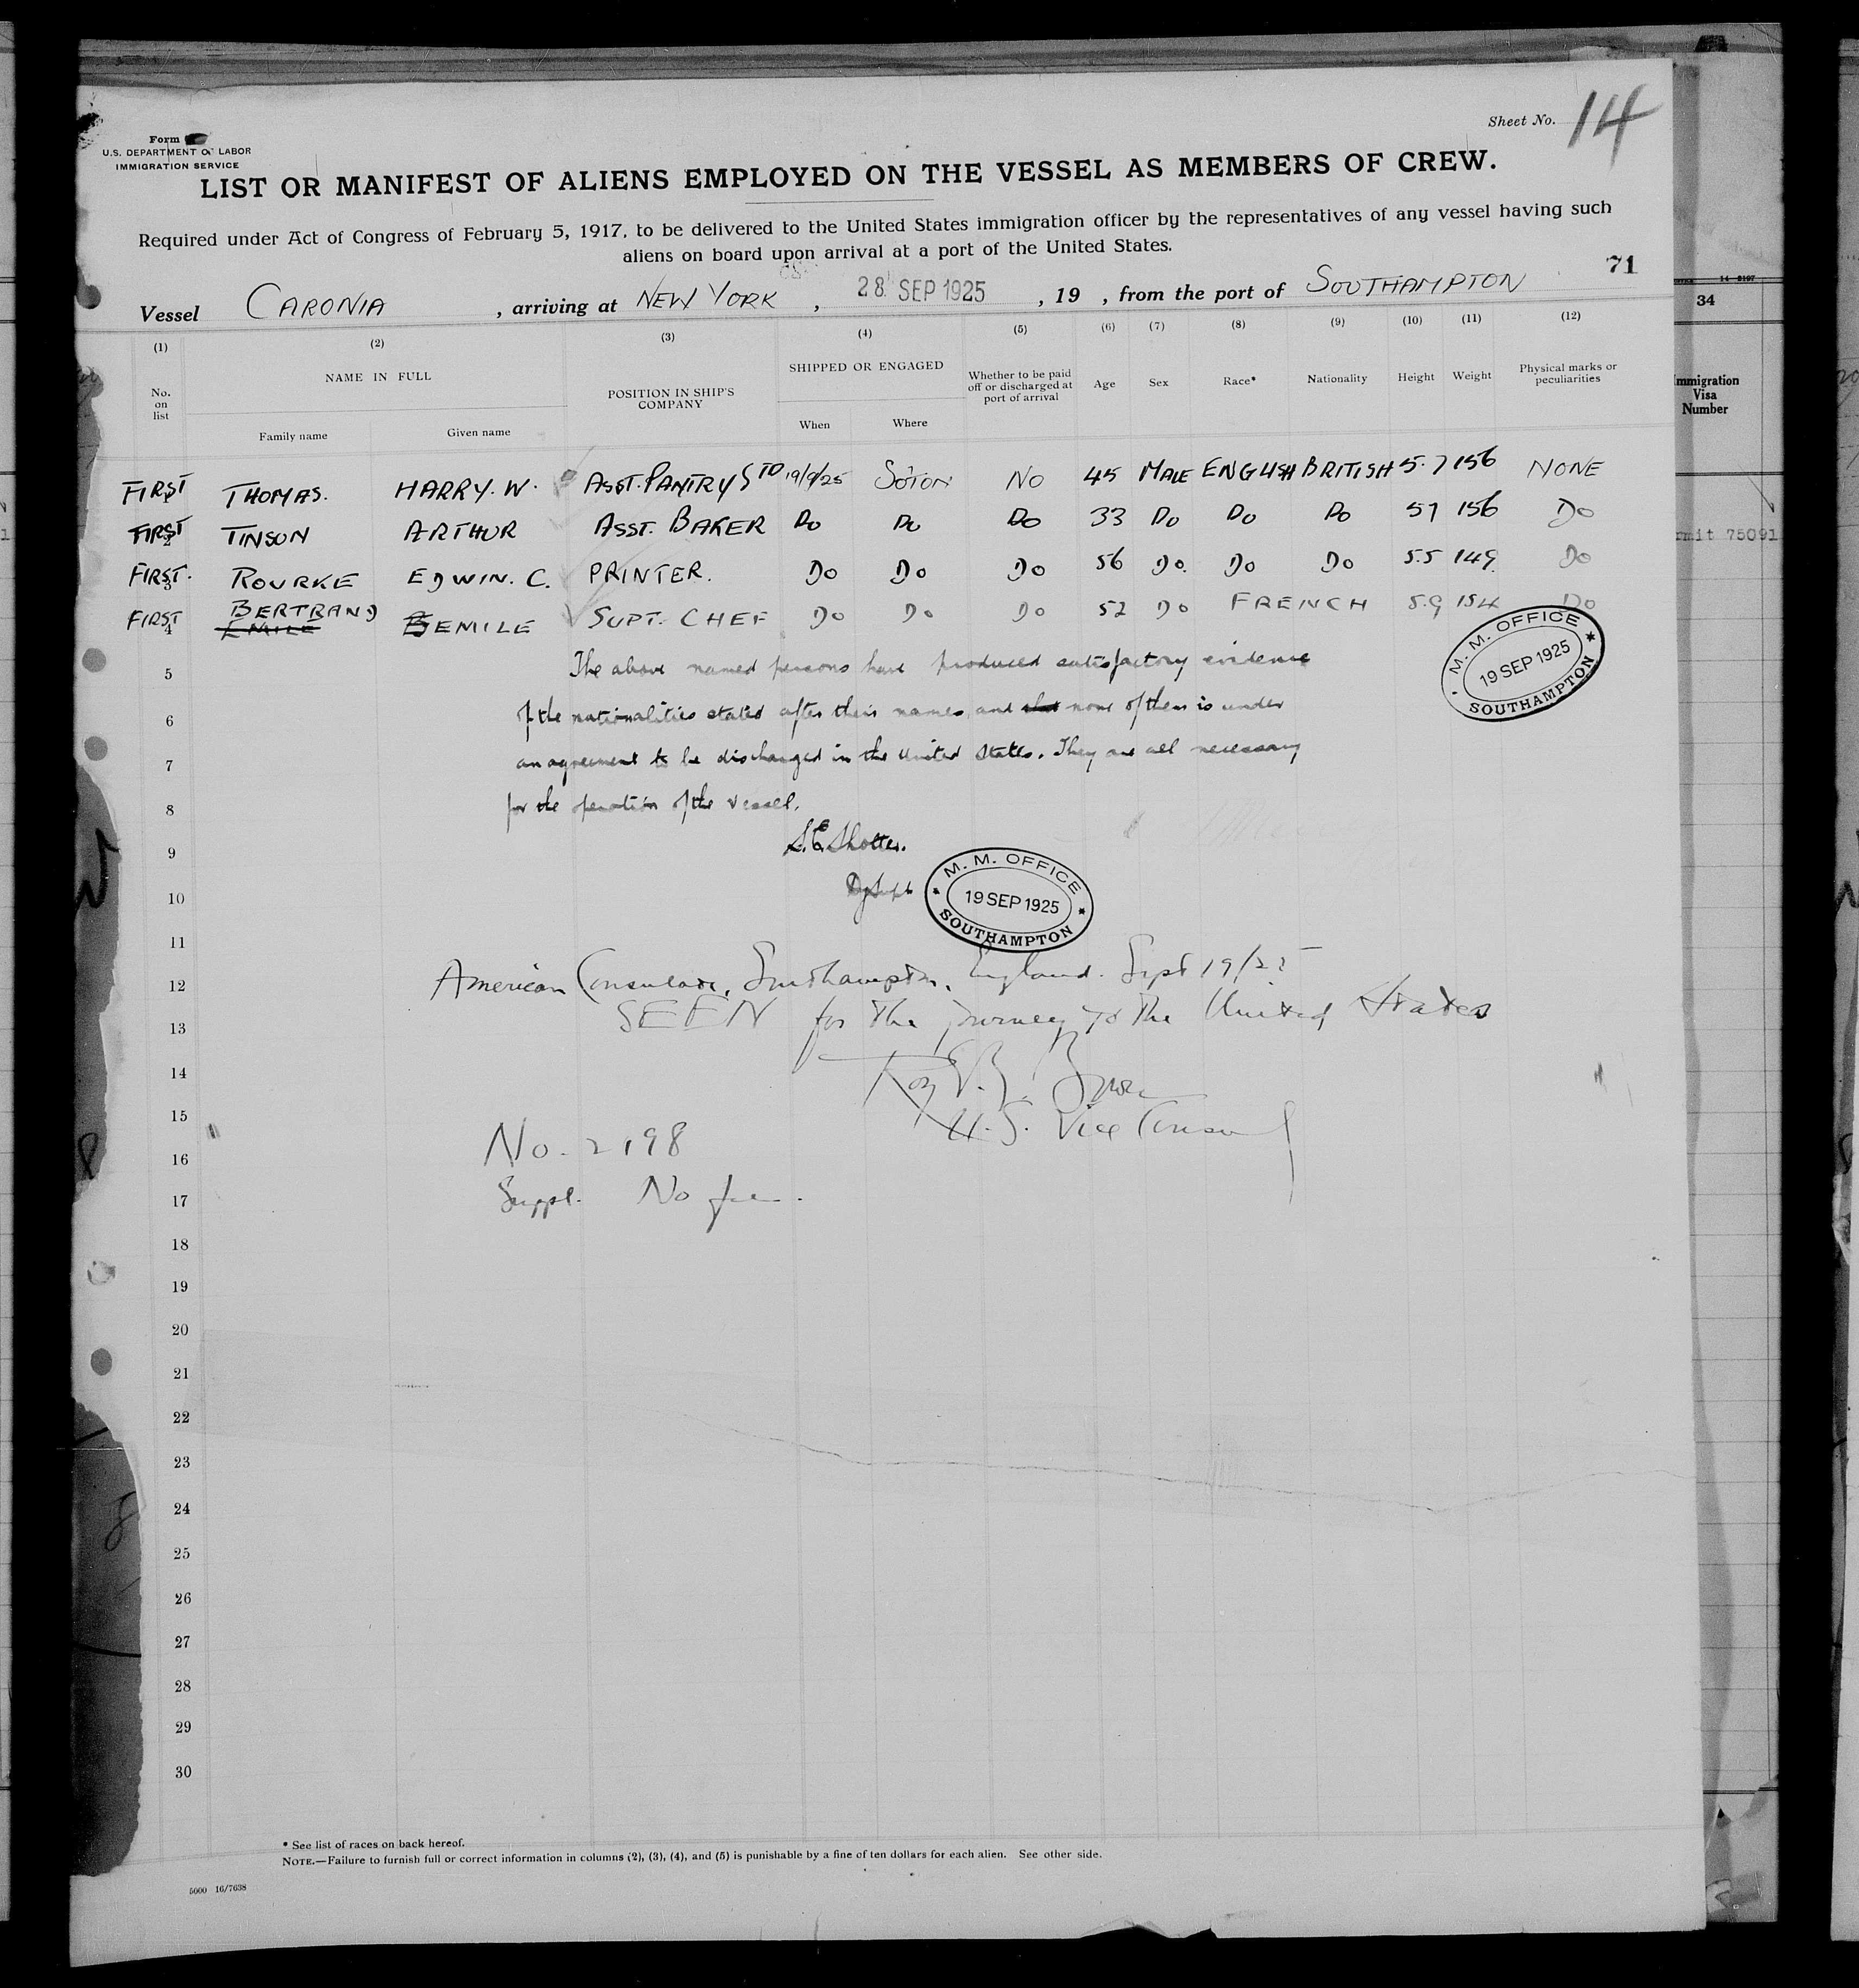 Sheet No. 14
Form
U.S. DEPARTMENT OF LABOR
IMMIGRATION SERVICE
LIST OR MANIFEST OF ALIENS EMPLOYED ON THE VESSEL AS MEMBERS OF CREW.
Required under Act of Congress of February 5, 1917, to be delivered to the United States immigration officer by the representatives of any vessel having such
aliens on board upon arrival at a port of the United States.
71
Vessel CARONIA, arriving at NEW YORK, 28 SEP 1925, 19 , from the port of SOUTHAMPTON
(1) (2) (3) (4) (5) (6) (7) (8) (9) (10) (11) (12)
No. on list NAME IN FULL POSITION IN SHIP'S COMPANY SHIPPED OR ENGAGED Whether to be paid off or discharged at port of arrival Age Sex Race* Nationality Height Weight Physical marks or peculiarities
Family name Given name When Where
FIRST 1 THOMAS. HARRY. W. ASST. PANTRY STD 19/9/25 SOTON NO 45 MALE ENGLISH BRITISH 5.7 156 NONE
FIRST 2 TINSON ARTHUR ASST. BAKER DO DO DO 33 DO DO DO 57 156 DO
FIRST. 3 ROURKE EDWIN. C. PRINTER. DO DO DO 56 DO. DO DO 5.5 149. DO
FIRST 4 BERTRAND EMILE EMILE SUPT. CHEF DO DO DO 52 DO FRENCH 5.9 154 DO
M. M. OFFICE
19 SEP 1925
SOUTHAMPTON
5 The above named persons have produced satisfactory evidence
6 of the nationalities stated after their names, and that none of them is under
7 an agreement to be discharged in the United States. They are all necessary
8 for the operation of the vessel.
9
10
M. M. OFFICE
19 SEP 1925
SOUTHAMPTON
11
12 American Consulate, Southampton, England. Sept 19/25
13 SEEN for the journey to the United States
14
15 U.S. Vice Consul
16 No. 2198
17 Suppl. No fee.
18
19
20
21
22
23
24
25
26
27
28
29
30
* See list of races on back hereof.
NOTE.—Failure to furnish full or correct information in columns (2), (3), (4), and (5) is punishable by a fine of ten dollars for each alien. See other side.
5000 16/7638
14—2107
34
Immigration
Visa
Number
rmit 75091